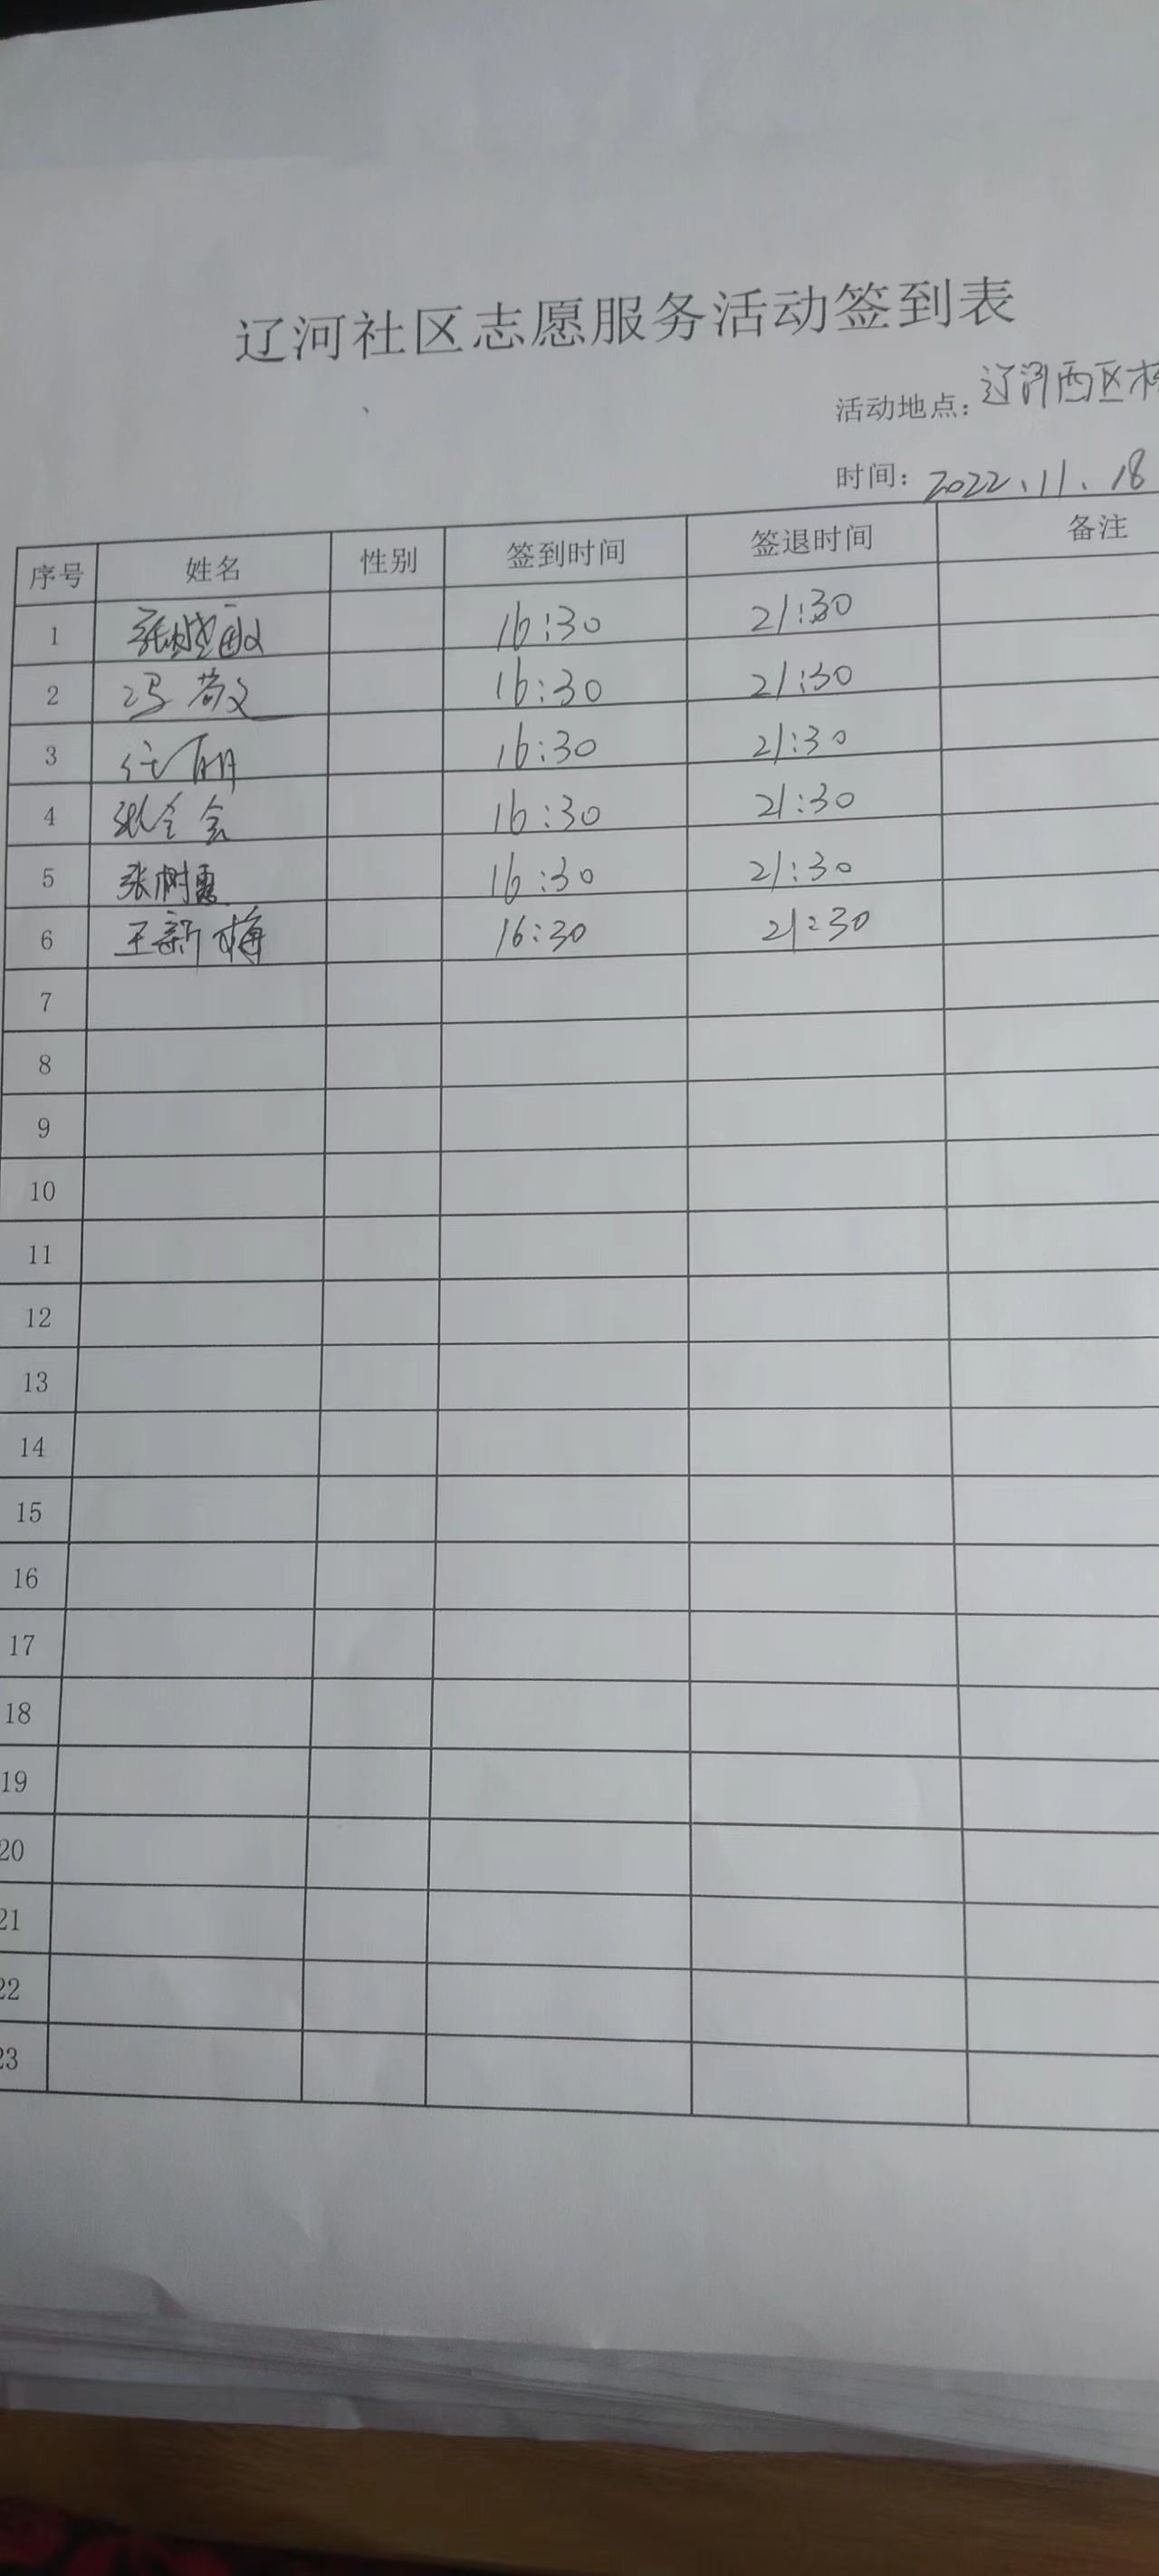 辽河社区志愿服务活动签到表
活动地点：辽河西区
时间：2022.11.18
序号 姓名 性别 签到时间 签退时间 备注
1 16:30 21:30
2 冯 16:30 21:30
3 任明 16:30 21:30
4 16:30 21:30
5 张树霞 16:30 21:30
6 王新梅 16:30 21:30
7
8
9
10
11
12
13
14
15
16
17
18
19
20
21
22
23